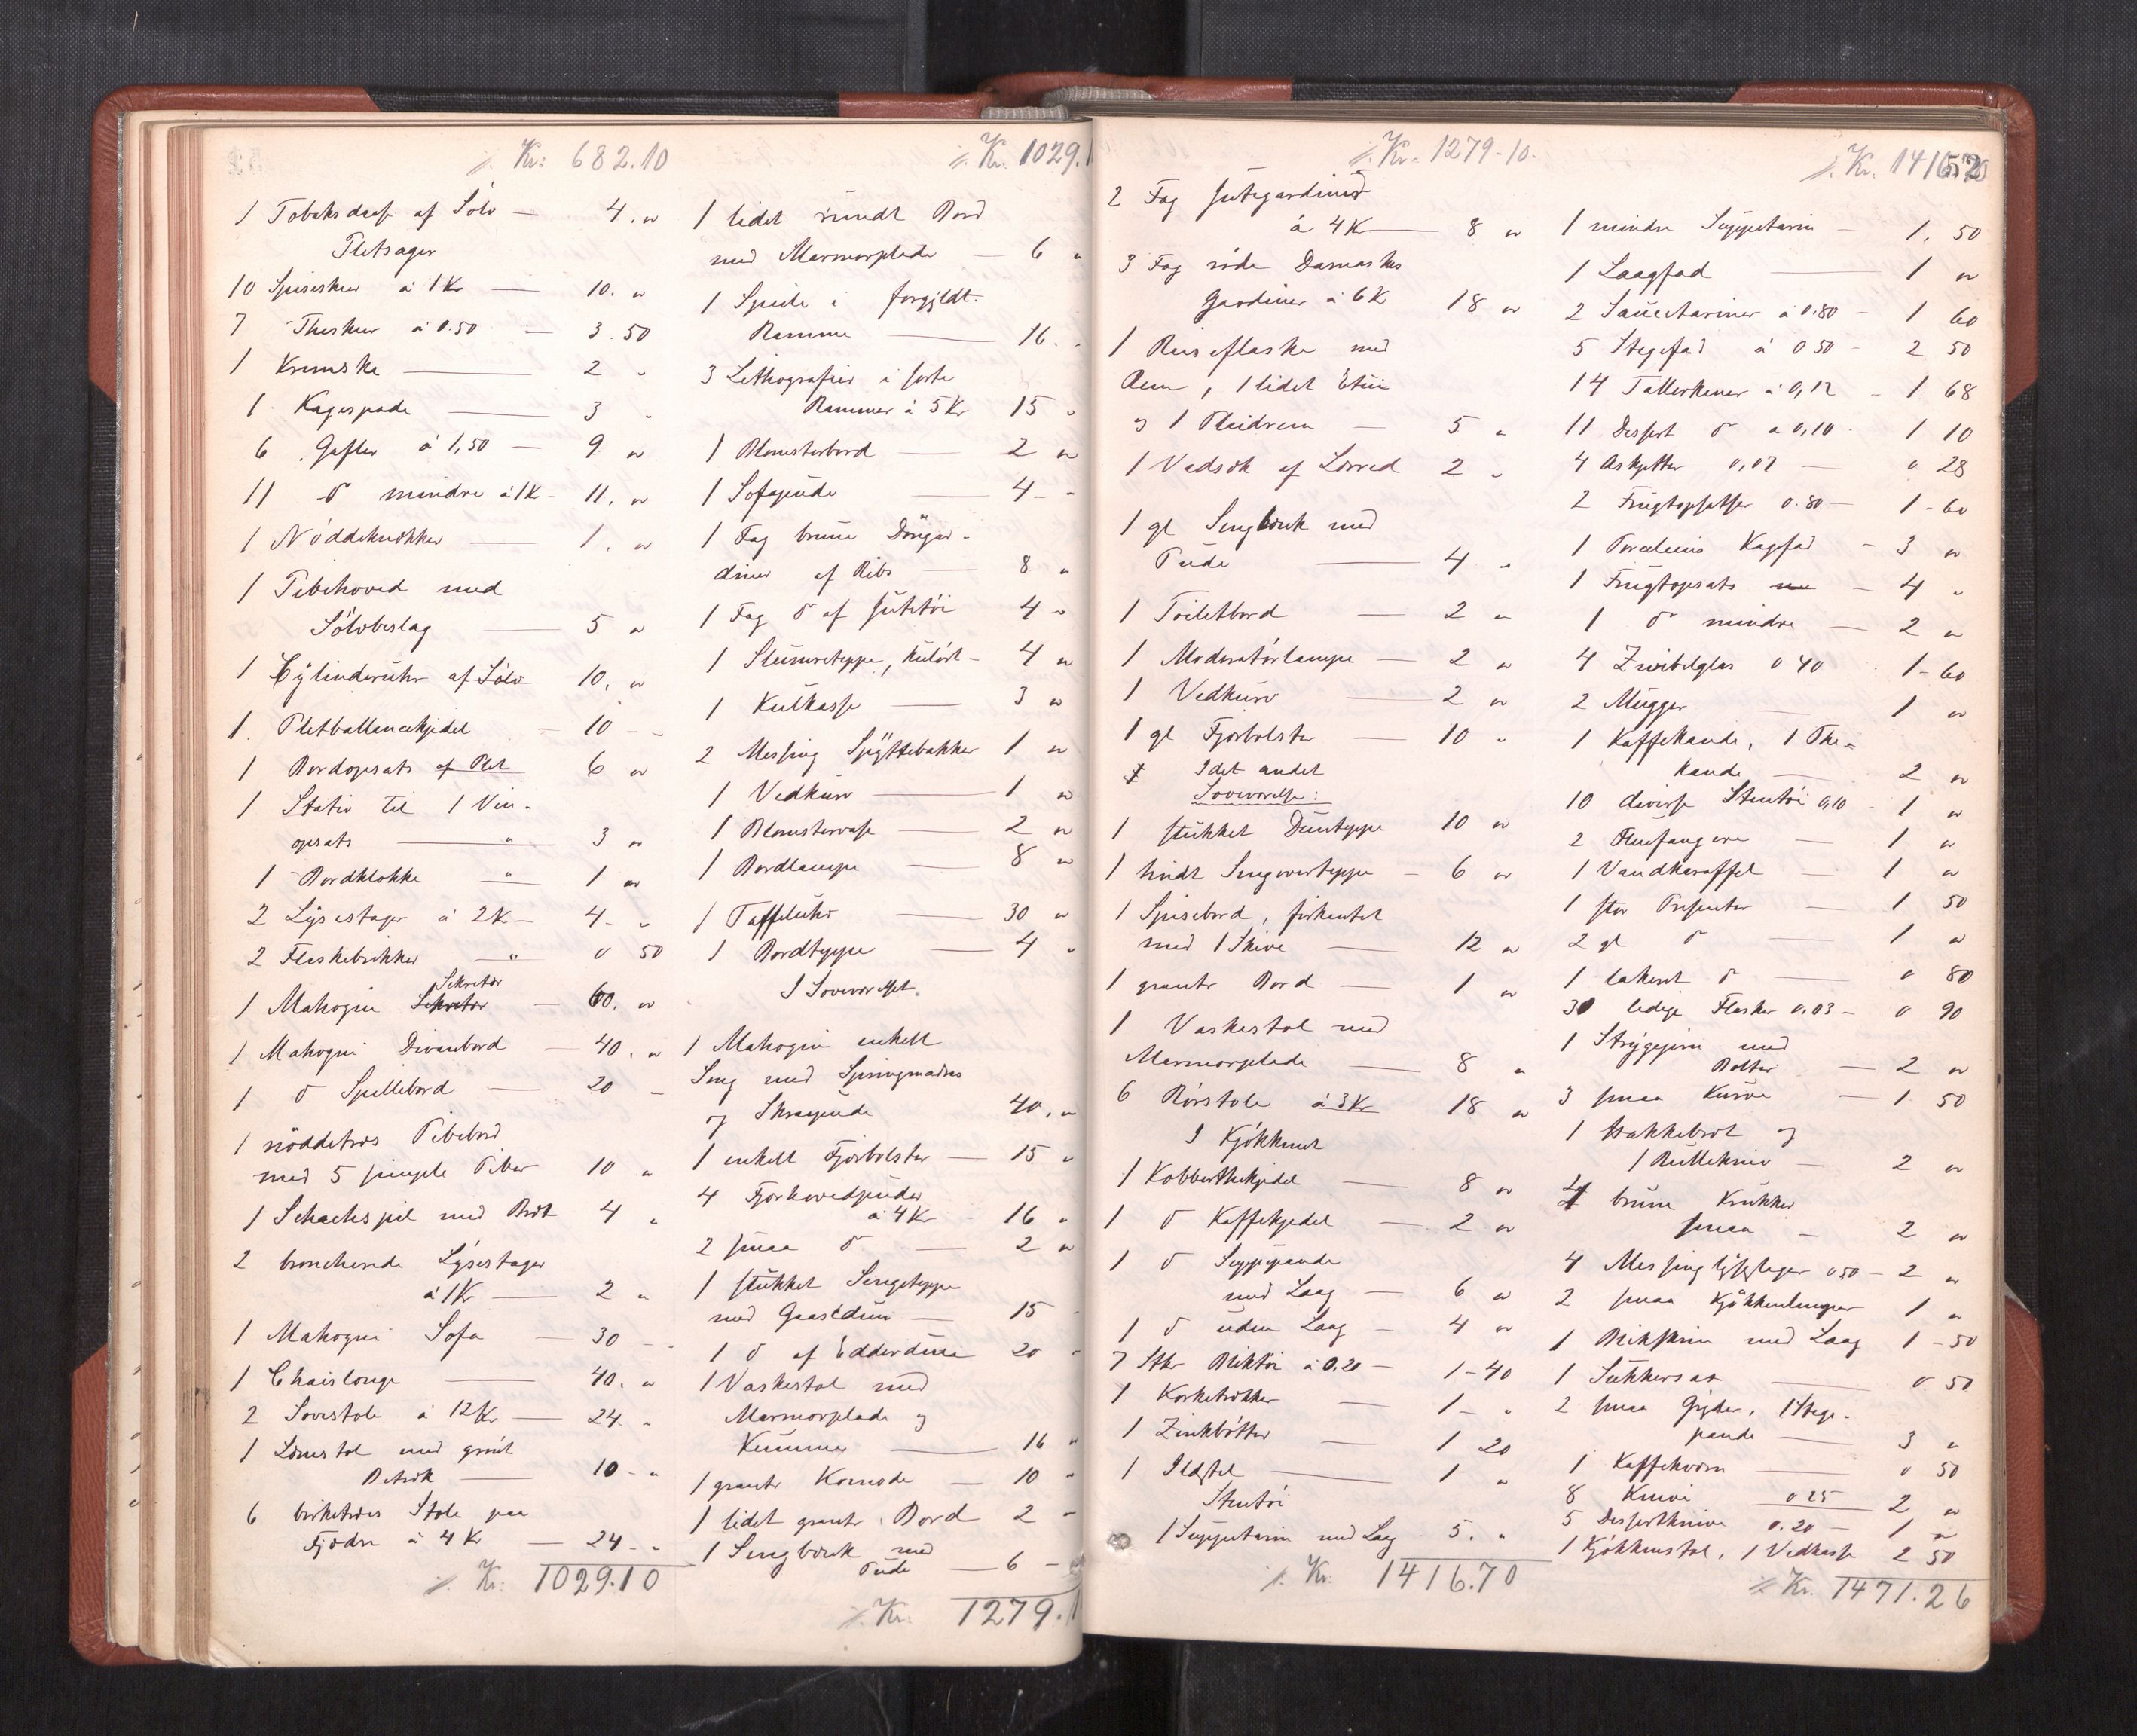 Kr: 682.10
1 Tobaksdaase af Sölv — 4. "
Pletsager
10 Spiseskeer à 1 Kr — 10. "
7 Theskeer à 0.50 — 3.50
1 Kremske — 2 "
1 Kagespade — 3 "
6 Gafler à 1,50 — 9 "
11 do mindre à 1 K — 11. "
1 Nöddeknækker — 1. "
1 Pibehoved med
Sölvbeslag — 5 "
1 Cylinderuhr af Sölv 10. "
1 Pletballancekjedel — 10 - -
1 Bordopsats af Plet 6 "
1 Stativ til 1 Vin-
opsats — " 3 "
1 Bordklokke — " 1 "
2 Lysestager à 2 K — 4 - "
2 Flaskebrikker — " 0 50
Sekretær
1 Mahogni — 60. "
1 Mahogni Divanbord — 40. "
1 do Spillebord — 20 -
1 nöddetræs Pibebord
med 5 simple Piber 10 "
1 Schachspil med Bræt 4 "
2 broncherede Lysestager
à 1 Kr — 2 "
1 Mahogni Sofa — 30 - -
1 Chaislonge — 40. "
2 Sovestole à 12 Kr — 24. "
1 Lænestol med grönt
Betræk — 10 - "
6 birketræs Stole paa
Fjedre à 4 Kr — 24 - "
Kr: 1029.10
Kr. 1029.1
1 lidet rundt Bord
med Marmorplade — 6 "
1 Speile i forgyldt
Ramme — 16. "
3 Lithografier i sorte
Rammer à 5 Kr 15 "
1 Blomsterbord — 2 "
1 Sofapude — 4 - -
1 Fag brune Dörgar-
diner af Ribs — 8 "
1 Fag do af Jutetöi 4 "
1 Slumreteppe, kulört — 4 "
1 Kulkasse — 3 "
2 Messing Spyttebakker 1 "
1 Vedkurv — 1 "
1 Blomstervase — 2 "
1 Bordlampe — 8 "
1 Taffeluhr — 30 "
1 Bordteppe — 4 "
I Soveværelset.
1 Mahogni enkelt
Seng med Springmadras
og Skraapude 40. "
1 enkelt Fjærbolster — 15 "
4 Fjærhovedpuder
à 4 Kr - 16 "
2 smaa do — 2 "
1 stukket Sengeteppe
med Gaasedun — 15 -
1 do af Edderdun 20 -
1 Vaskestol med
Marmorplade og
Kummer — 16 "
1 grants Komode — 10 "
1 lidet grants Bord 2 -
1 Sengbænk med
Pude — 6 -
Kr: 1279.1
Kr. 1279-10.
2 Fag Jutegardiner
à 4 K — 8 "
3 Fag röde Damaskes
Gardiner à 6 K 18 "
1 Reiseflaske med
Rem, 1 lidet Etui
og 1 Pleidrem — 5 "
1 Vadsæk af Lærred 2 "
1 gl Sengbænk med
Pude — 4 "
1 Toiletbord — 2 "
1 Moderatörlampe — 2 "
1 Vedkurv — 2 "
1 gl Fjærbolster — 10 "
I det andet
Soveværelse:
1 stukket Dunteppe 10 "
1 hvidt Sengoverteppe — 6 "
1 Spisebord, firkantet
med 1 Skive — 12 "
1 grants Bord — 1 "
1 Vaskestol med
Marmorplade — 8 "
6 Rörstole à 3 Kr 18 "
I Kjökkenet
1 Kobberthekjedel — 8 "
1 do Kaffekjedel — 2 "
1 do Suppepande
med Laag — 6 "
1 do uden Laag — 4 "
7 Stkr Bliktöi à 0.20 — 1-40
1 Korketrækker — 1 - "
1 Zinkbötte — 1 20
1 Ildstel — 1 "
Stentöi
1 Suppeterin med Laag 5. "
Kr. 1416.70
Kr.
1 mindre Suppeterin — 1. 50
1 Laagfad — 1 "
2 Sauceteriner à 0.80 — 1 60
5 Stegefad à 0 50 — 2 50
14 Tallerkener à 0,12 — 1 68
11 Dessert do à 0,10 - 1 10
4 Askjetter 0,07 — 0 28
2 Frugtopsatser 0.80 — 1-60
1 Porcelæins Kagfad — 3 "
1 Frugtopsats — 4 "
1 do mindre — 2 "
4 Zwibelglas 0 40 1-60
2 Mugger — 1 "
1 Kaffekande, 1 The-
kande — 2 "
10 diverse Stentöi 0,10 - 1 "
2 Fluefangere — 1 "
1 Vandkaraffel — 1 "
1 stor Presenter — 1 50
2 gl do — 1 "
1 lakeret do — 0 80
30 ledige Flasker 0.03 — 0 90
1 Strygejern med
Bolter — 2 "
3 smaa Kurve — 1 50
1 Hakkebræt og
1 Rullekniv — 2 "
4 brune Krukker
smaa — 2 "
4 Messinglysestager 0 50 — 2 "
2 smaa Kjökkenlamper 1 "
1 Blikskrin med Laag 1-50
1 Sukkersax — 0 50
2 smaa Gryder, 1 Stege-
pande — 3 "
1 Kaffekværn — 0 50
8 Knive 0 25 2 "
5 Dessertknive 0.20 — 1 "
1 Kjökkenstol, 1 Vedkasse 2 50
Kr. 1471.26